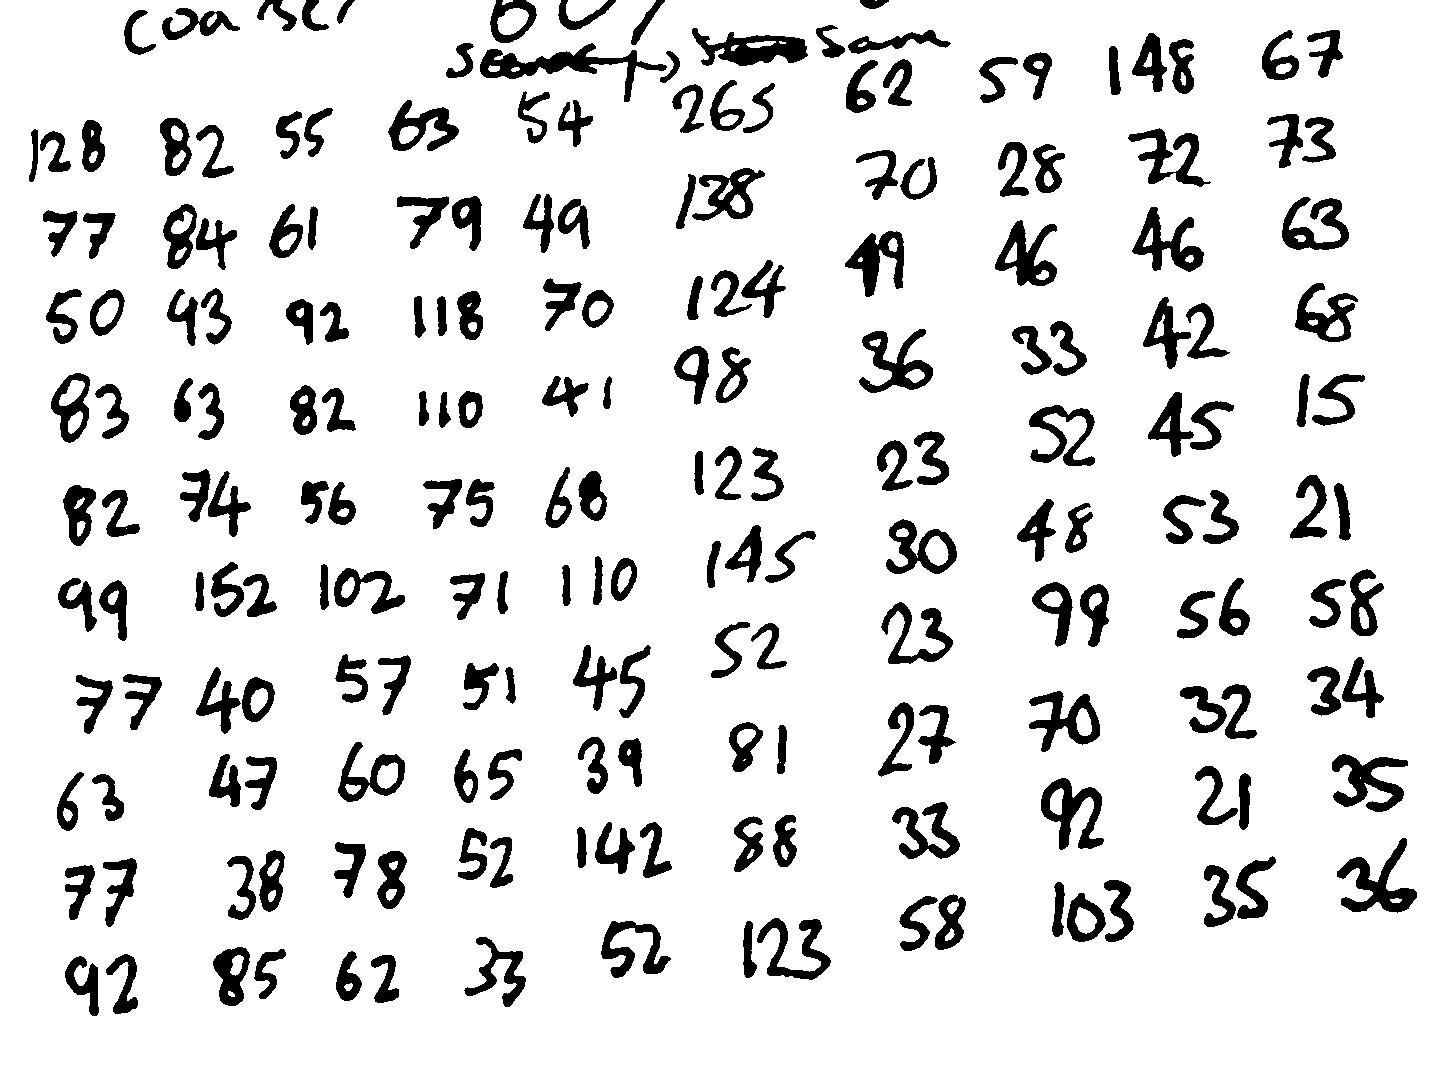 128 82 55 63 54 265 62 59 148 67
77 84 61 79 49 138 70 28 72 73
50 93 92 118 70 124 49 46 46 63
83 63 82 110 41 98 36 33 42 68
82 74 56 75 68 123 23 52 45 15
99 152 102 71 110 145 30 48 53 21
77 40 57 51 45 52 23 99 56 58
63 47 60 65 39 81 27 70 32 34
77 38 78 52 142 88 33 92 21 35
92 85 62 33 52 123 58 103 35 36